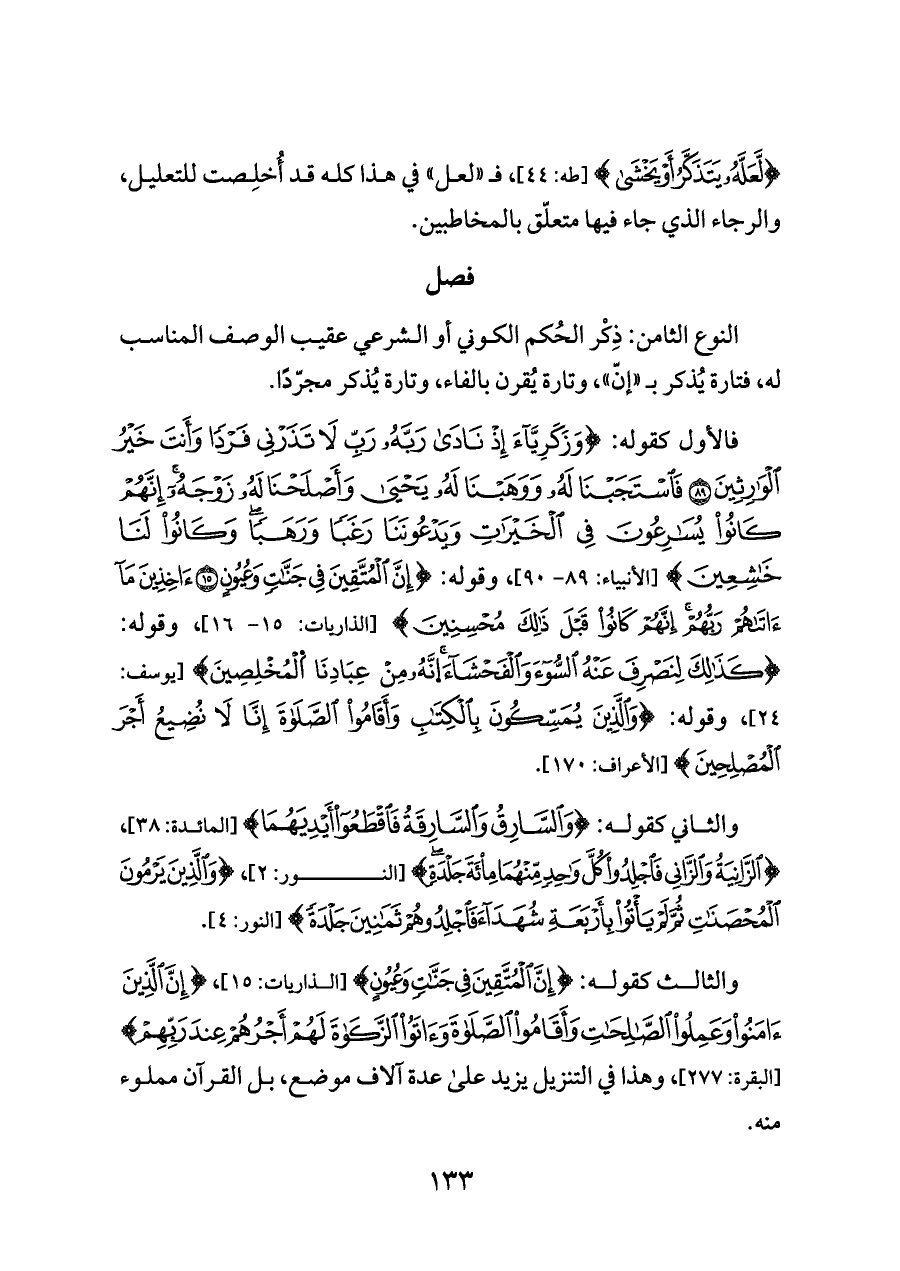 ﴿لَّعَلَّهُۥ يَتَذَكَّرُ أَوۡ يَخۡشَىٰ﴾ [طه: ٤٤]، فـ «لعـل» في هـذا كلـه قـد أُخلِـصت للتعليـل،
والرجاء الذي جاء فيها متعلّق بالمخاطبين.
فصل
النوع الثامن: ذِكْر الحُكم الكوني أو الشرعي عقيب الوصف المناسب
له، فتارة يُذكر بـ «إنّ»، وتارة يُقرن بالفاء، وتارة يُذكر مجرّدًا.
فالأول كقوله: ﴿وَزَكَرِيَّآءَ إِذۡ نَادَىٰ رَبَّهُۥ رَبِّ لَا تَذَرۡنِي فَرۡدٗا وَأَنتَ خَيۡرُ
ٱلۡوَٰرِثِينَ ۝٨٩ فَٱسۡتَجَبۡنَا لَهُۥ وَوَهَبۡنَا لَهُۥ يَحۡيَىٰ وَأَصۡلَحۡنَا لَهُۥ زَوۡجَهُۥٓۚ إِنَّهُمۡ
كَانُواْ يُسَٰرِعُونَ فِي ٱلۡخَيۡرَٰتِ وَيَدۡعُونَنَا رَغَبٗا وَرَهَبٗاۖ وَكَانُواْ لَنَا
خَٰشِعِينَ﴾ [الأنبياء: ٨٩- ٩٠]، وقوله: ﴿إِنَّ ٱلۡمُتَّقِينَ فِي جَنَّٰتٖ وَعُيُونٍ ۝١٥ ءَاخِذِينَ مَآ
ءَاتَىٰهُمۡ رَبُّهُمۡۚ إِنَّهُمۡ كَانُواْ قَبۡلَ ذَٰلِكَ مُحۡسِنِينَ﴾ [الذاريات: ١٥- ١٦]، وقوله:
﴿كَذَٰلِكَ لِنَصۡرِفَ عَنۡهُ ٱلسُّوٓءَ وَٱلۡفَحۡشَآءَۚ إِنَّهُۥ مِنۡ عِبَادِنَا ٱلۡمُخۡلِصِينَ﴾ [يوسف:
٢٤]، وقوله: ﴿وَٱلَّذِينَ يُمَسِّكُونَ بِٱلۡكِتَٰبِ وَأَقَامُواْ ٱلصَّلَوٰةَ إِنَّا لَا نُضِيعُ أَجۡرَ
ٱلۡمُصۡلِحِينَ﴾ [الأعراف: ١٧٠].
والثـاني كقولـه: ﴿وَٱلسَّارِقُ وَٱلسَّارِقَةُ فَٱقۡطَعُوٓاْ أَيۡدِيَهُمَا﴾ [المائدة: ٣٨]،
﴿ٱلزَّانِيَةُ وَٱلزَّانِي فَٱجۡلِدُواْ كُلَّ وَٰحِدٖ مِّنۡهُمَا مِاْئَةَ جَلۡدَةٖۖ﴾ [النـــــور: ٢]، ﴿وَٱلَّذِينَ يَرۡمُونَ
ٱلۡمُحۡصَنَٰتِ ثُمَّ لَمۡ يَأۡتُواْ بِأَرۡبَعَةِ شُهَدَآءَ فَٱجۡلِدُوهُمۡ ثَمَٰنِينَ جَلۡدَةٗ﴾ [النور: ٤].
والثالـث كقولـه: ﴿إِنَّ ٱلۡمُتَّقِينَ فِي جَنَّٰتٖ وَعُيُونٍ﴾ [الـذاريات: ١٥]، ﴿إِنَّ ٱلَّذِينَ
ءَامَنُواْ وَعَمِلُواْ ٱلصَّٰلِحَٰتِ وَأَقَامُواْ ٱلصَّلَوٰةَ وَءَاتَوُاْ ٱلزَّكَوٰةَ لَهُمۡ أَجۡرُهُمۡ عِندَ رَبِّهِمۡ﴾
[البقرة: ٢٧٧]، وهذا في التنزيل يزيد علىٰ عدة آلاف موضع، بل القرآن مملوء
منه.
١٣٣